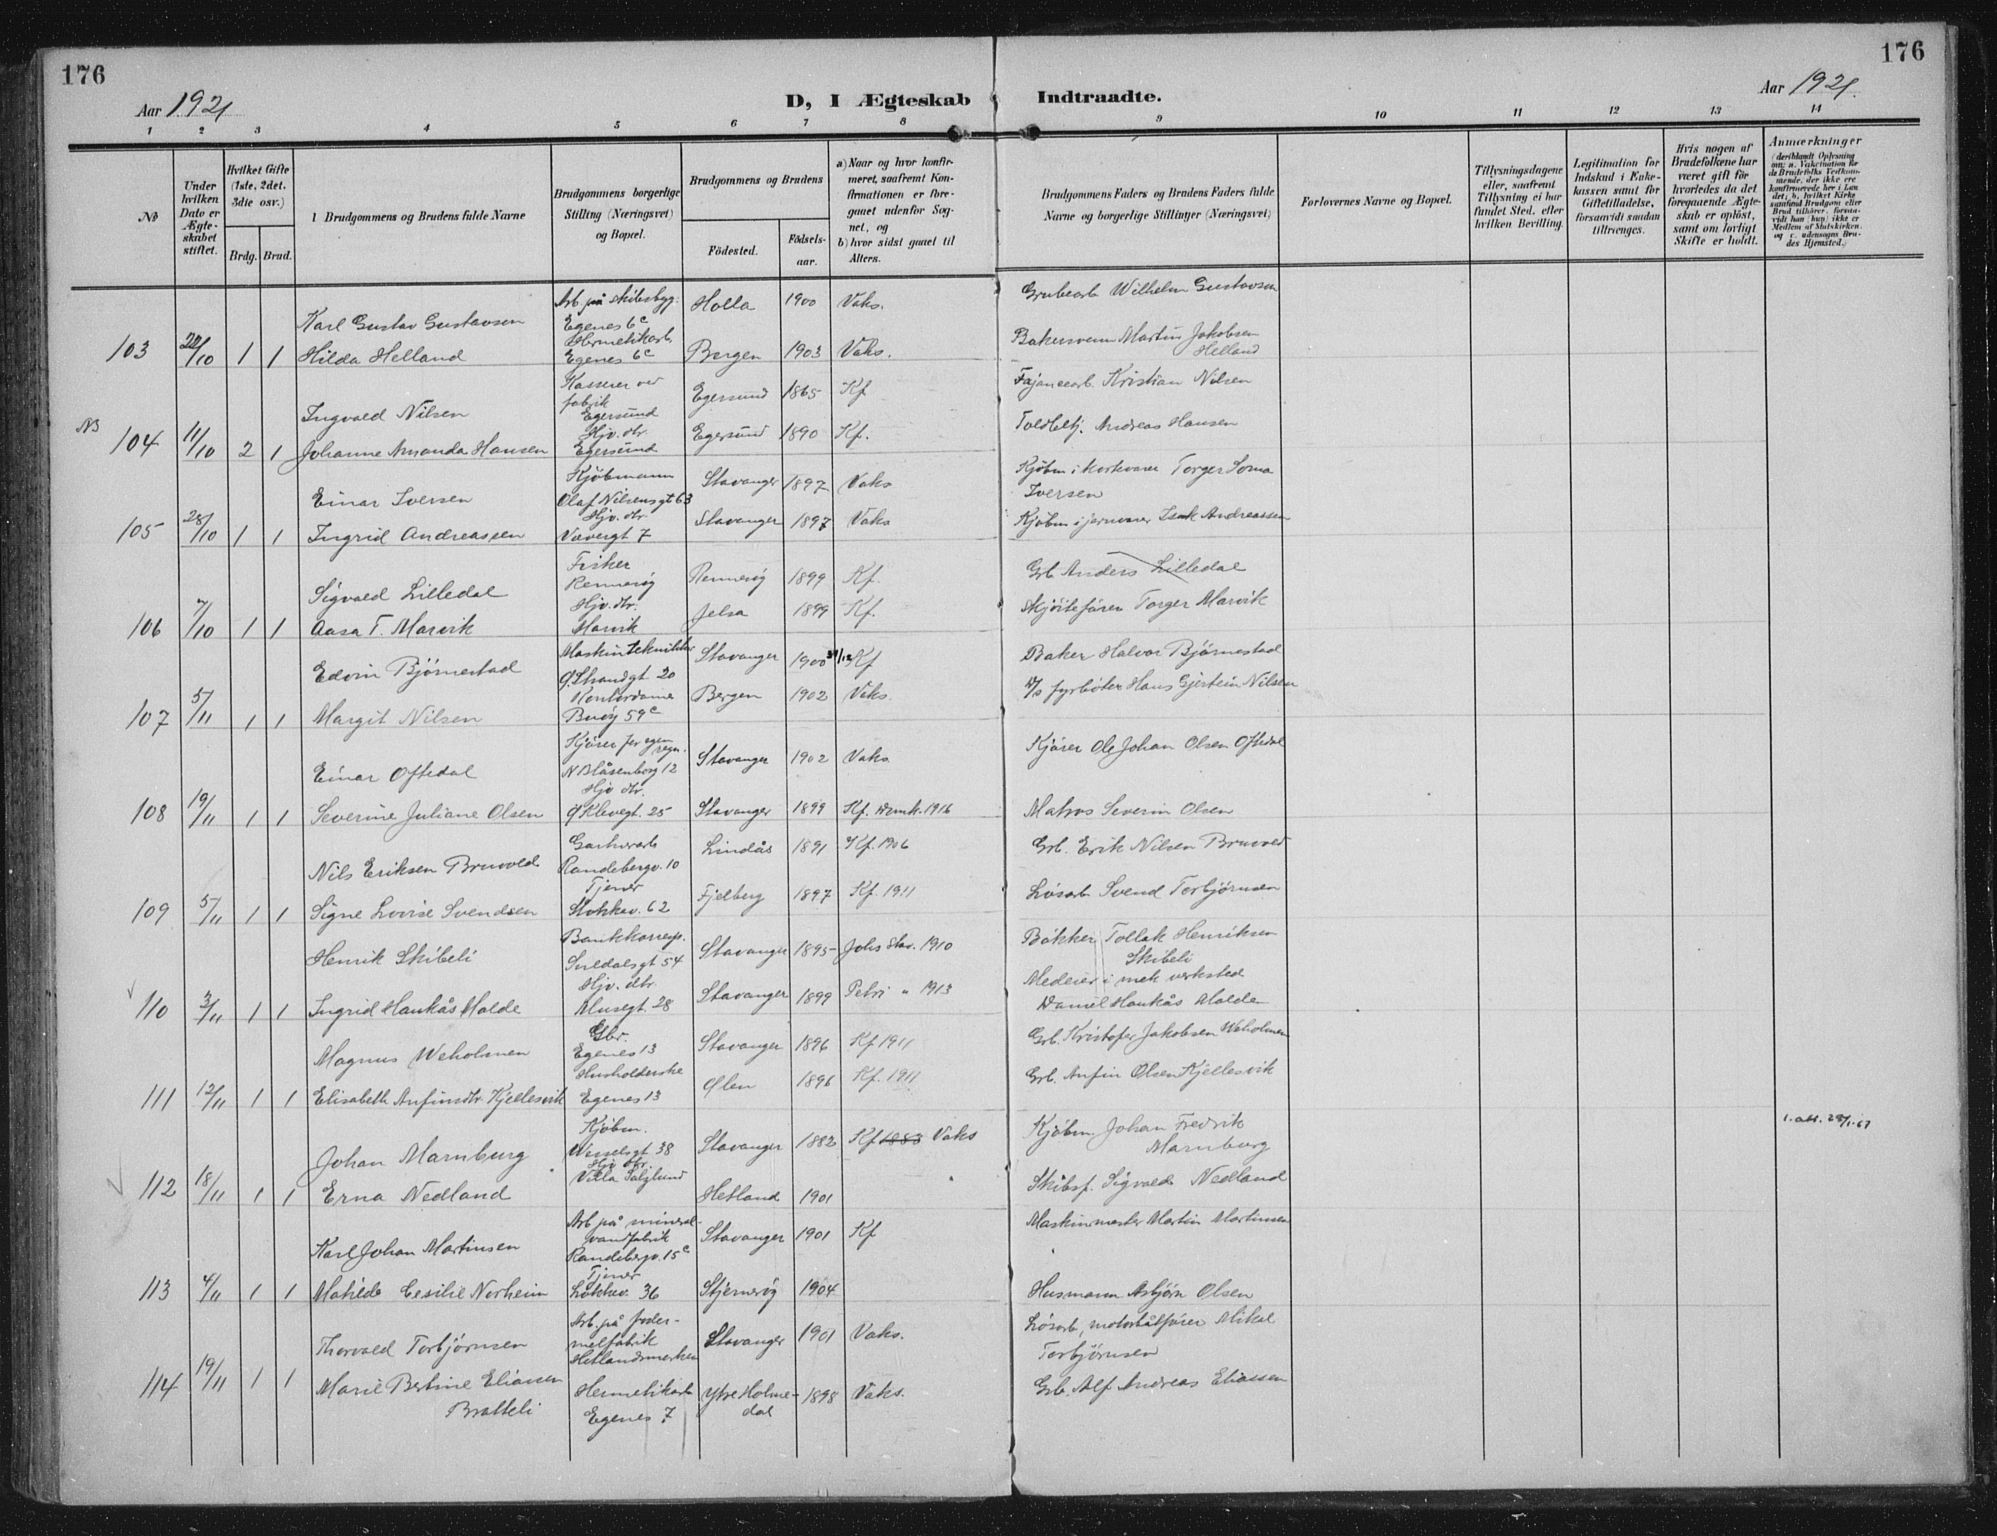 176
176
Aar 1921
D, I Ægteskab Indtraadte.
Aar 1921.
1 2 3 4 5 6 7 8 9 10 11 12 13 14
No
Under hvilken Dato er Ægteskabet stiftet.
Hvilket Gifte (1ste, 2det, 3die osv.)
Brdg. Brud.
Brudgommens og Brudens fulde Navne
Brudgommens borgerlige Stilling (Næringsvei) og Bopæl.
Brudgommens og Brudens
Fødested.
Fødselsaar.
a) Naar og hvor konfirmeret, saafremt Konfirmationen er foregaaet udenfor Sognet, og
b) hvor sidst gaaet til Alters.
Brudgommens Faders og Brudens Faders fulde Navne og borgerlige Stillinger (Næringsvei)
Forlovernes Navne og Bopæl.
Tillysningsdagene eller, saafremt Tillysning ei har fundet Sted, efter hvilken Bevilling.
Legitimation for Indskud i Enkekassen samt for Giftetilladelse, forsaavidt saadan tiltrænges.
Hvis nogen af Brudefolkene har været gift før hvorledes da det foregaaende Ægteskab er opløst, samt om lovligt Skifte er holdt.
Anmærkninger
Karl Gustav Gustavsen Arb på skibsbygg. Egenes 6c Holla 1900 Vaks. Grubearb Wilhelm Gustavsen
103 22/10 1 1 Hilda Helland Hermetikarb. Egenes 6c Bergen 1903 Vaks. Bakersvenn Martin Jakobsen Helland
Ingvald Nilsen Kasserer ved fabrik Egersund Egersund 1865 Kf Fajancearb. Kristian Nilsen
NB 104 11/10 2 1 Johanne Amanda Hansen Hjv. dtr. Egersund Egersund 1890 Kf. Toldbetj. Andreas Hansen
Einar Iversen Kjøbmann Olaf Nilsensgt 63 Stavanger 1897 Vaks Kjøbm i kortvarer Torger Soma Iversen
105 28/10 1 1 Ingrid Andreassen Hjv. dtr. Vævergt 7 Stavanger 1897 Vaks Kjøbm i jernvarer Isak Andreassen
Sigvald Lilledal Fisker Rennesøy Rennesøy 1899 Kf. Grb Anders Lilledal
106 7/10 1 1 Aasa T. Marvik Hjv. dtr. Marvik Jelsa 1899 Kf. Skjøitefører Torger Marvik
Edvin Bjørnestad Maskintekniker Ø. Strandgt 20 Stavanger 1900 31/12 Kf Baker Halvor Bjørnestad
107 5/11 1 1 Margit Nilsen Kontordame Buøy 59c Bergen 1902 Vaks. D/s fyrbøter Hans Gjertsin Nilsen
Einar Oftedal Kjører for egen regn. N Blåsenborg 12 Stavanger 1902 Vaks. Kjører Ole Johan Olsen Oftedal
108 19/11 1 1 Severine Juliane Olsen Hjv dtr. Ø Klevegt. 25 Stavanger 1899 Kf. Domk. 1916 Matros Severin Olsen
Nils Eriksen Bruvold Randebergv. 10 Lindås 1891 Kf. 1906 Grb. Erik Nilsen Bruvold
109 5/11 1 1 Signe Lovise Svendsen Tjener Stokkav. 62 Fjelberg 1897 Kf. 1911 Løsarb Svend Torbjørnsen
Henrik Skibeli Bankkorresp. Suldalsgt 54 Stavanger 1895 Johs Stav. 1910 Bøkker Tollak Henriksen Skibeli
110 3/11 1 1 Ingrid Haukås Molde Hjv. dtr. Musegt. 28 Stavanger 1899 Petri " 1913 Medeier i mek verksted Daniel Haukås Molde
Magnus Weholmen Gbr. Egenes 13 Stavanger 1896 Kf 1911 Grb. Kristofer Jakobsen Weholmen
111 12/11 1 1 Elisabeth Anfinsdtr. Kjellesvik Husholderske Egenes 13 Ølen 1896 Kf. 1911 Grb. Anfin Olsen Kjellesvik
Johan Marnburg Kjøbm. Wesselsgt 38 Stavanger 1882 Kf 1883 Vaks Kjøbm. Johan Fredrik Marnburg 1. att. 28/1-67
112 18/11 1 1 Erna Nedland Hjv dtr. Villa Hetland 1901 Skibsf. Sigvald Nedland
Karl Johan Martinsen Arb på mineralvandfabrik Randebergv. 15c Stavanger 1901 Kf Maskinmester Martin Martinsen
113 4/11 1 1 Matilde Cesilie Norheim Tjener Løkkev. 36 Stjernerøy 1904 Husmann Asbjørn Olsen
Thorvald Torbjørnsen Arb. på fodermelfabrik Hetlandsmarken Stavanger 1901 Vaks. Løsarb, motorbåtfører Mikal Torbjørnsen
114 19/11 1 1 Marie Bertine Eliassen Bratteli Hermetikarb Egenes 7 Ytre Holmedal 1898 Vaks. Grb. Alf Andreas Eliassen